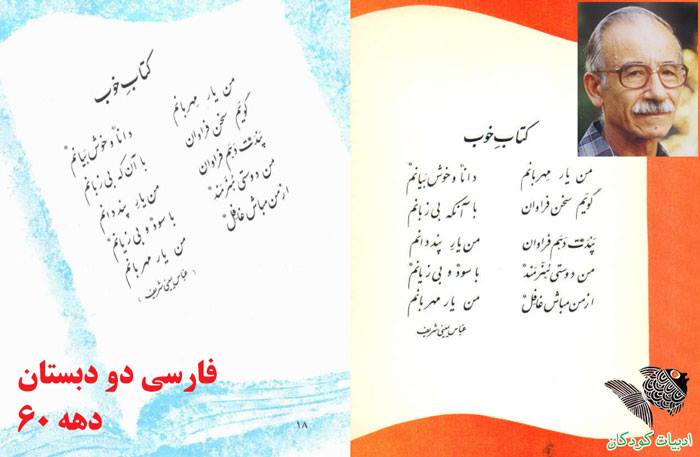 کتاب خوب
من یار مهربانم دانا و خوش بیانم
گویم سخن فراوان با آنکه بی زبانم
پندت دهم فراوان من یار پند دانم
من دوستی هنرمند با سود و بی زیانم
از من مباش غافل من یار مهربانم
عباس یمینی شریف
ادبیات کودکان
کتابِ خوب
من یار مهربانم دانا و خوش بیانم
گویم سخن فراوان با آن که بی زبانم
پندت دهم فراوان من یار پند دانم
من دوستی هنرمند با سود و بی زیانم
از من مباش غافل من یار مهربانم
(عباس یمینی شریف)
فارسی دو دبستان
دهه ۶۰
۱۸